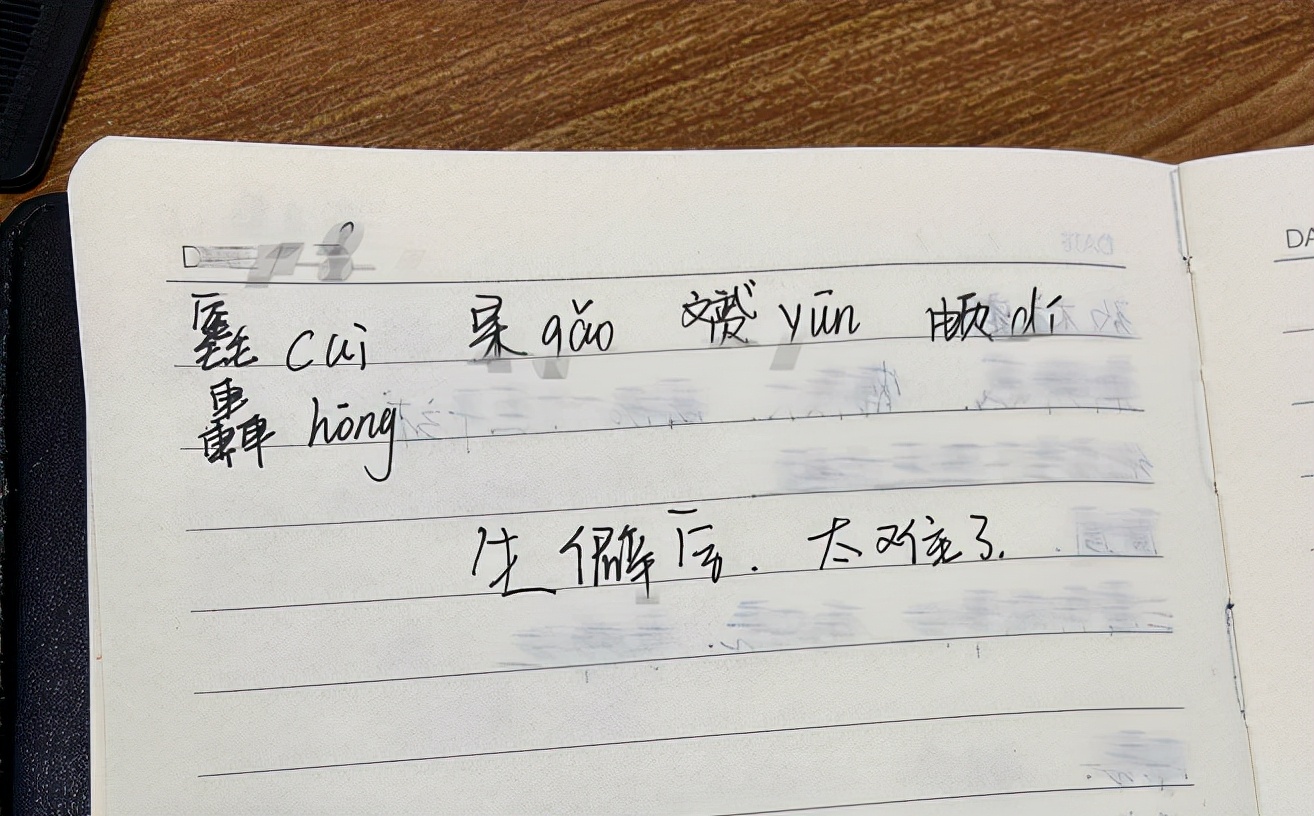 毳 cuì 杲 gǎo 赟 yūn 頔 dí
轟 hōng
生僻字. 太难了.